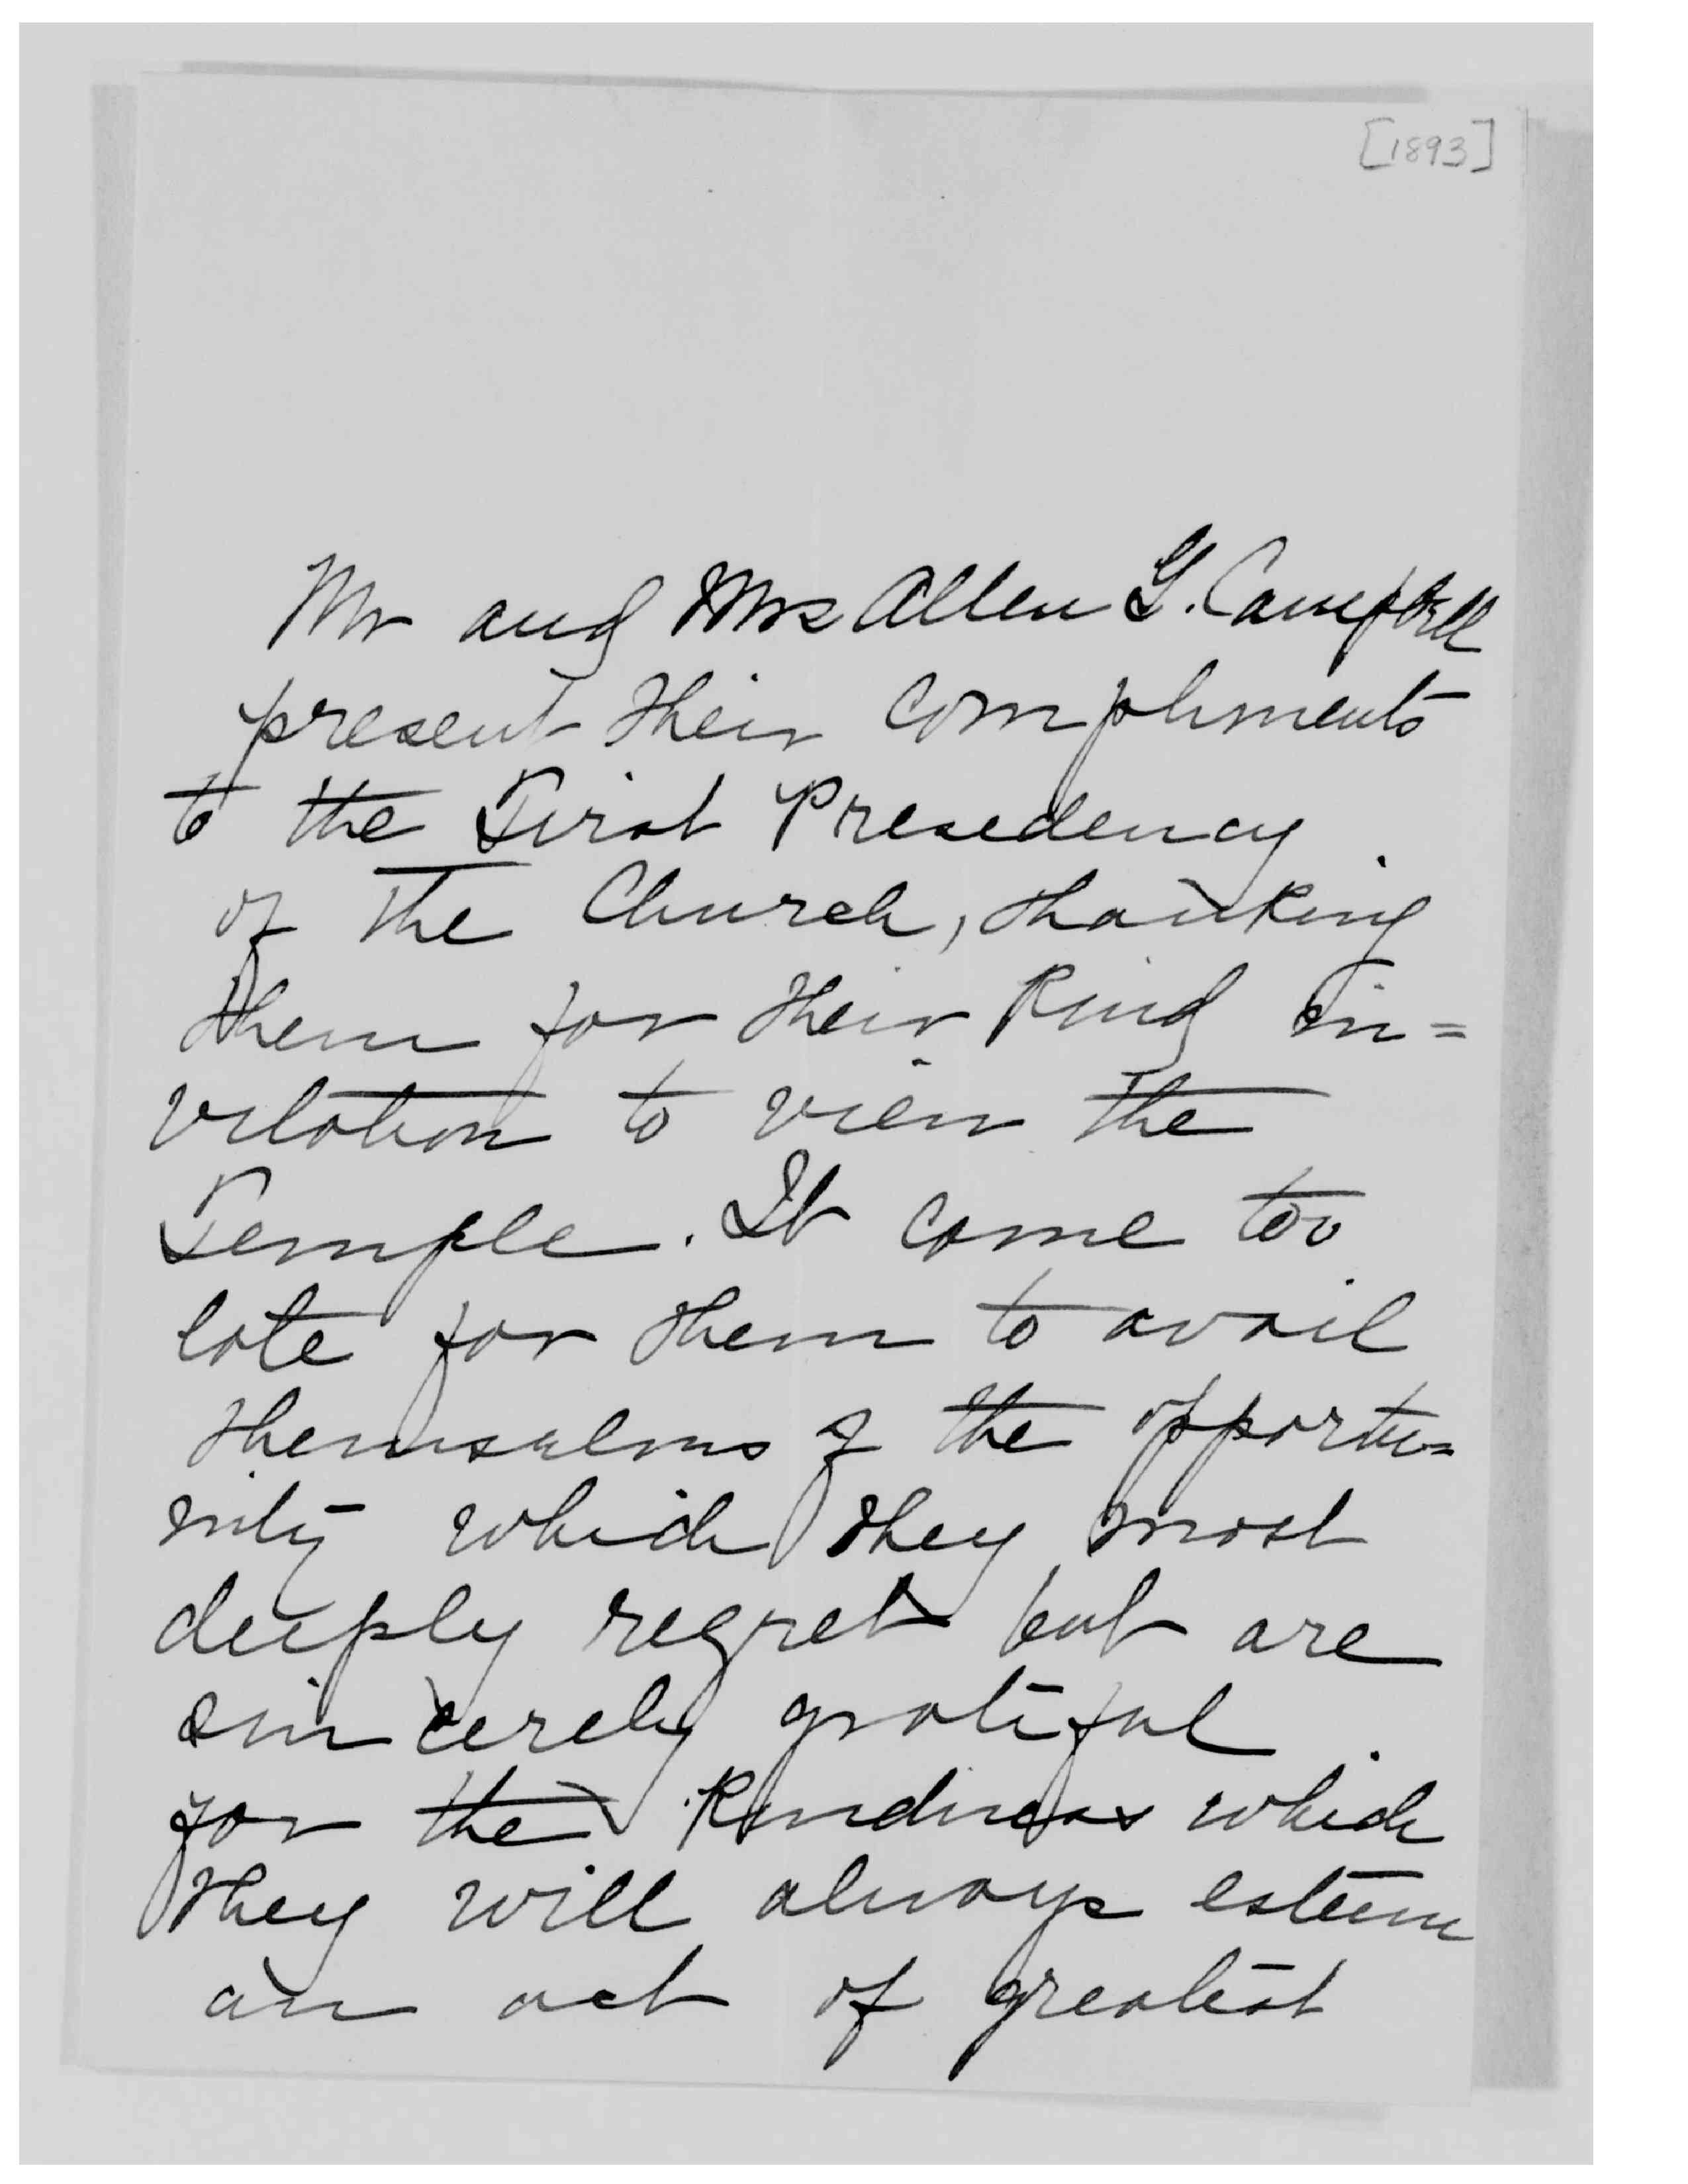 [1893]
Mr and Mrs Allen G. Campbell
present their compliments
to the First Presedency
of The Church, thanking
them for their kind in=
vitation to view the
Temple. It came too
late for them to avail
themselves of the opportu=
nity which they most
deeply regret but are
sincerely grateful
for the kindness which
they will always esteem
an act of greatest